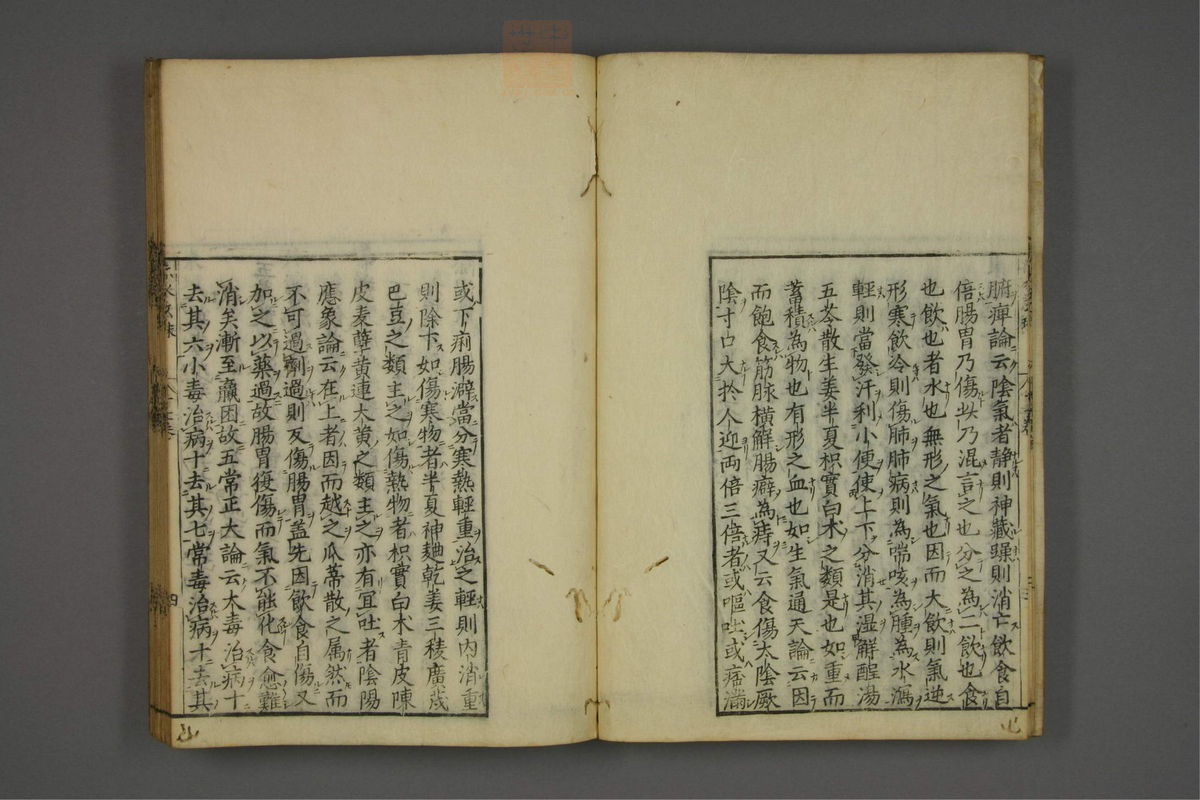 腑痺論云陰氣者静則神藏躁則消亡飲食自
倍腸胃乃傷此乃混言之也分之為二飲也食
也飲也者水也無形之氣也因而大飲則氣逆
形寒飲冷則傷肺肺病則為喘咳為腫為水瀉
輕則當發汗利小便使上下分消其湿解酲湯
五苓散生姜半夏枳實白术之類是也如重而
蓄積為物也有形之血也如生氣通天論云因
而飽食筋脉横解腸癖為痔又云食傷太陰厥
陰寸口大於人迎両倍三倍者或嘔吐或痞滿
或下痢腸澼當分寒熱輕重治之輕則内消重
則除下如傷寒物者半夏神麯乾姜三稜廣茂
巴豆之類主之如傷熱物者枳實白术青皮陳
皮麦蘖黄連大黄之類主之亦有冝吐者陰陽
應象論云在上者因而越之瓜蒂散之属然而
不可過劑過則反傷腸胃盖先因飲食自傷又
加之以藥過故腸胃復傷而氣不能化食愈難
消矣漸至羸困故五常正大論云大毒治病十
去其六小毒治病十去其七常毒治病十去其
四